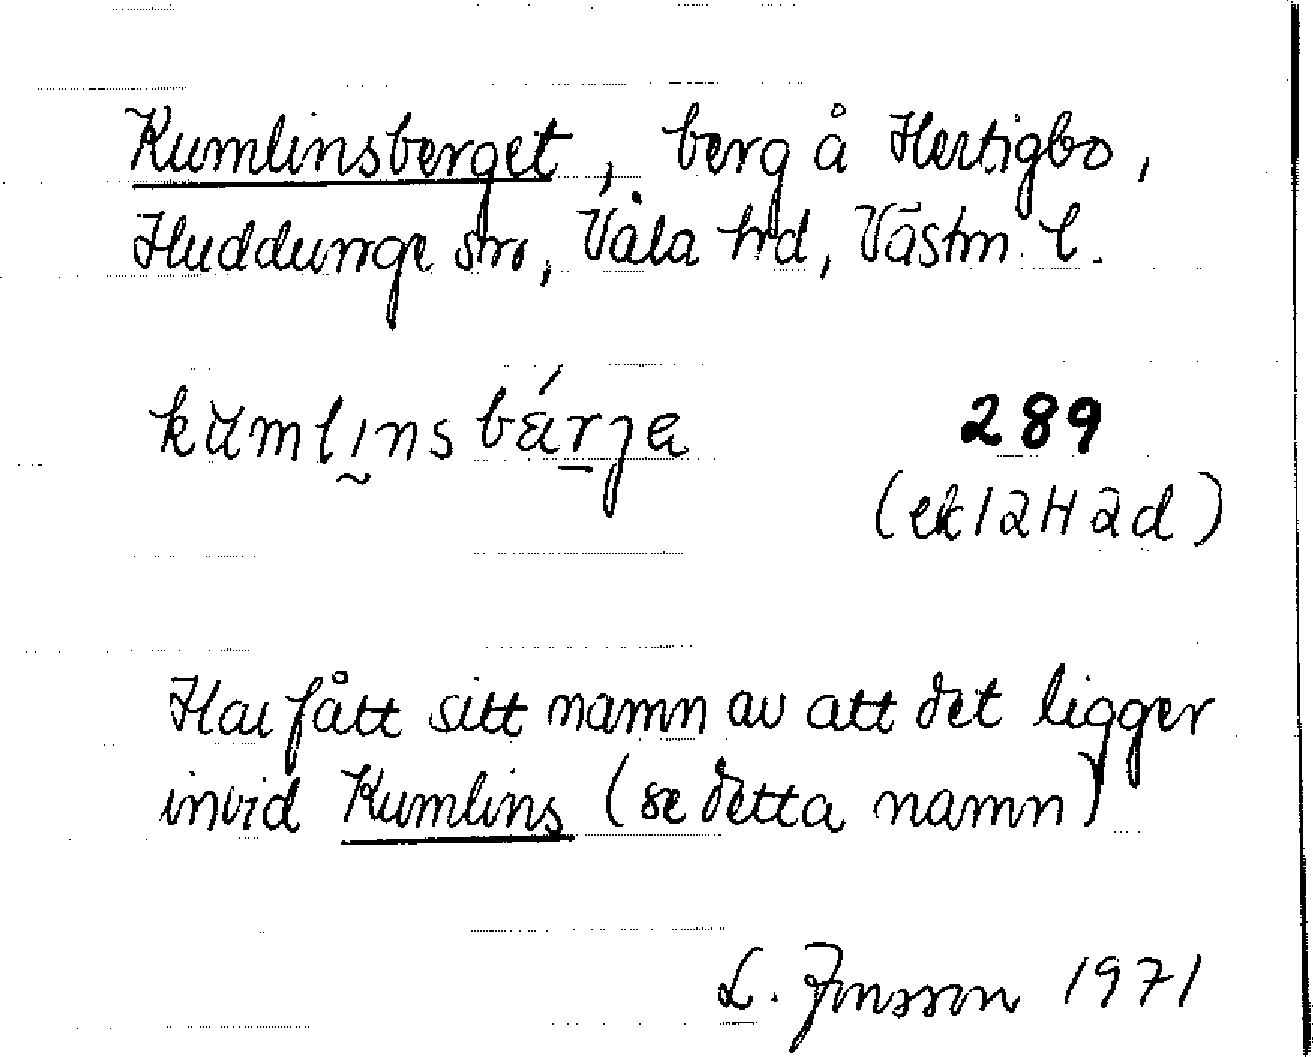 Kumlinsberget, berg å Hertigbo,
Huddunge sn, Våla hd, Västm. l.
kumlinsbárja
289
(ek 12H2d)
Har fått sitt namn av att det ligger
invid Kumlins (se detta namn)
L. Jonsson 1971